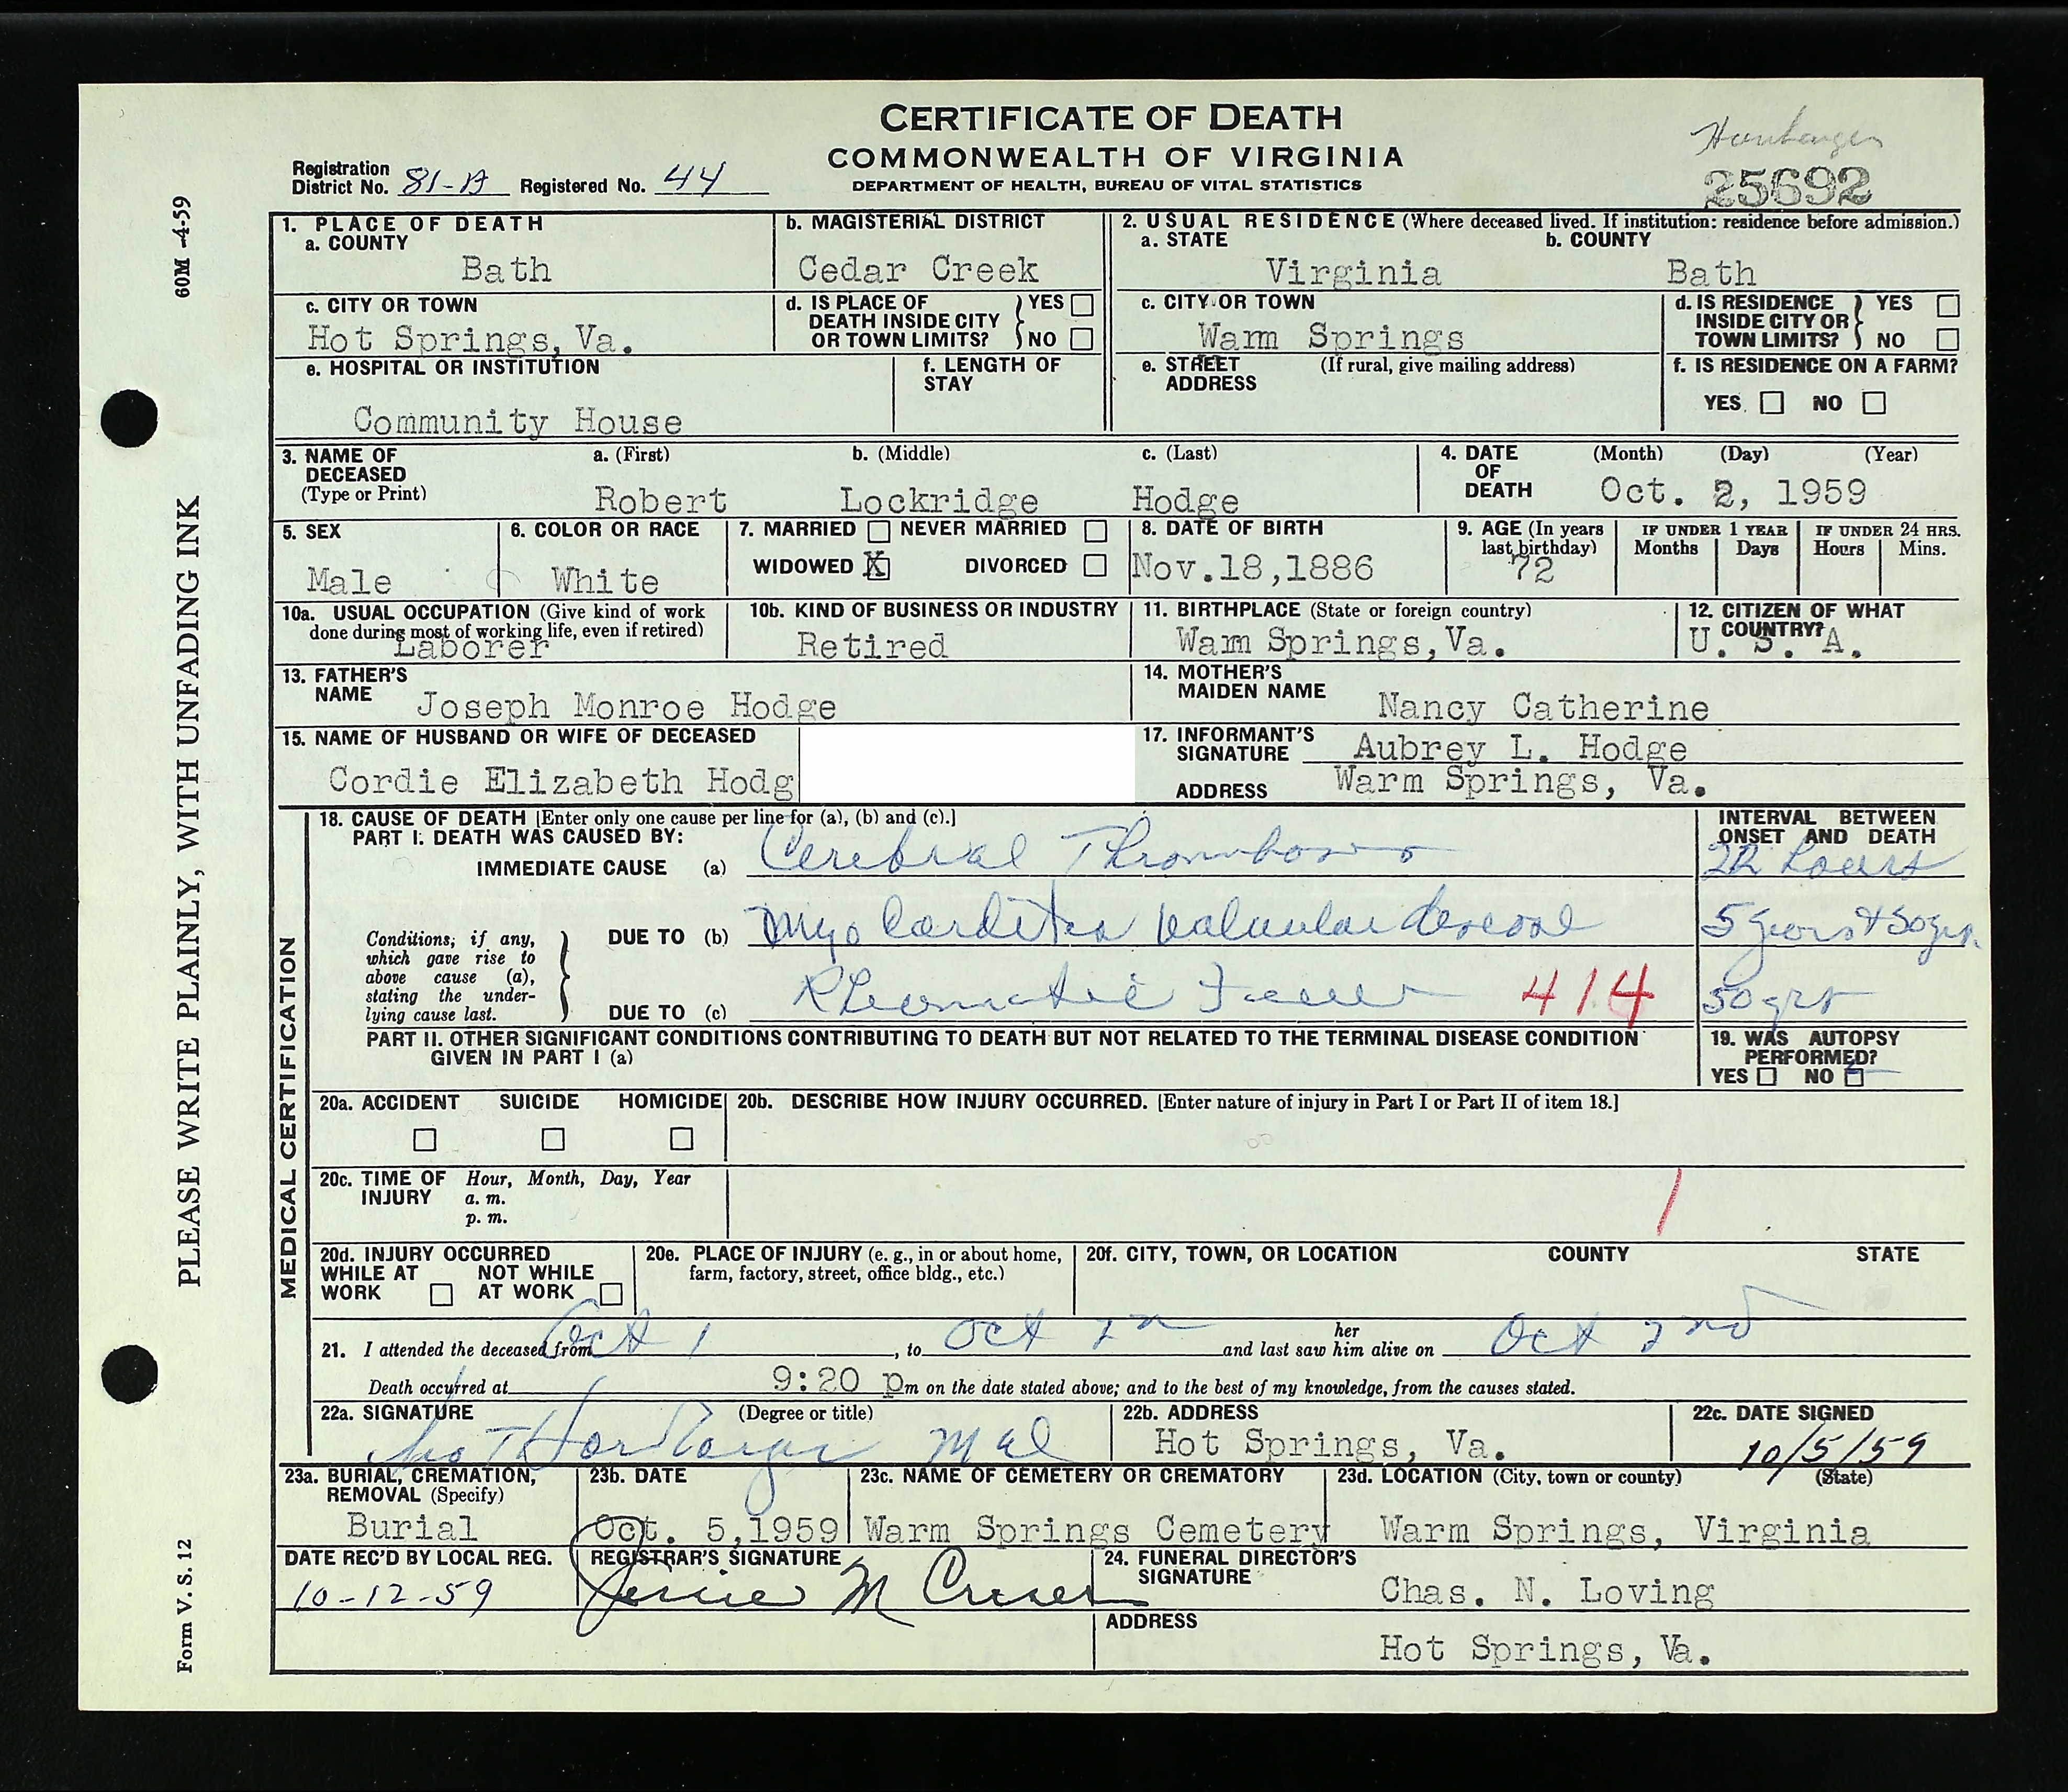 CERTIFICATE OF DEATH
COMMONWEALTH OF VIRGINIA
DEPARTMENT OF HEALTH, BUREAU OF VITAL STATISTICS
Registration District No. 81-A Registered No. 44
25692
60M -4-59
PLEASE WRITE PLAINLY, WITH UNFADING INK
Form V. S. 12
1. PLACE OF DEATH
a. COUNTY
Bath
b. MAGISTERIAL DISTRICT
Cedar Creek
2. USUAL RESIDENCE (Where deceased lived. If institution: residence before admission.)
a. STATE
Virginia
b. COUNTY
Bath
c. CITY OR TOWN
Hot Springs, Va.
d. IS PLACE OF DEATH INSIDE CITY OR TOWN LIMITS? YES NO
c. CITY OR TOWN
Warm Springs
d. IS RESIDENCE INSIDE CITY OR TOWN LIMITS? YES NO
e. HOSPITAL OR INSTITUTION
Community House
f. LENGTH OF STAY
e. STREET ADDRESS (If rural, give mailing address)
f. IS RESIDENCE ON A FARM?
YES NO
3. NAME OF DECEASED (Type or Print)
a. (First) b. (Middle) c. (Last)
Robert Lockridge Hodge
4. DATE OF DEATH (Month) (Day) (Year)
Oct. 2, 1959
5. SEX
Male
6. COLOR OR RACE
White
7. MARRIED NEVER MARRIED
WIDOWED X DIVORCED
8. DATE OF BIRTH
Nov.18,1886
9. AGE (In years last birthday)
72
IF UNDER 1 YEAR
Months Days
IF UNDER 24 HRS.
Hours Mins.
10a. USUAL OCCUPATION (Give kind of work done during most of working life, even if retired)
Laborer
10b. KIND OF BUSINESS OR INDUSTRY
Retired
11. BIRTHPLACE (State or foreign country)
Warm Springs,Va.
12. CITIZEN OF WHAT COUNTRY?
U. S. A.
13. FATHER'S NAME
Joseph Monroe Hodge
14. MOTHER'S MAIDEN NAME
Nancy Catherine
15. NAME OF HUSBAND OR WIFE OF DECEASED
Cordie Elizabeth Hodg
17. INFORMANT'S SIGNATURE Aubrey L. Hodge
ADDRESS Warm Springs, Va.
MEDICAL CERTIFICATION
18. CAUSE OF DEATH [Enter only one cause per line for (a), (b) and (c).]
PART I. DEATH WAS CAUSED BY:
INTERVAL BETWEEN ONSET AND DEATH
IMMEDIATE CAUSE (a) Cerebral Thrombosis
hours
Conditions, if any, which gave rise to above cause (a), stating the underlying cause last.
DUE TO (b) Myocarditis valvular disease
5 years & 50 yrs.
DUE TO (c) Rheumatic Fever 414
50 yrs
PART II. OTHER SIGNIFICANT CONDITIONS CONTRIBUTING TO DEATH BUT NOT RELATED TO THE TERMINAL DISEASE CONDITION GIVEN IN PART I (a)
19. WAS AUTOPSY PERFORMED?
YES NO
20a. ACCIDENT SUICIDE HOMICIDE
20b. DESCRIBE HOW INJURY OCCURRED. [Enter nature of injury in Part I or Part II of item 18.]
20c. TIME OF INJURY Hour, Month, Day, Year
a. m.
p. m.
20d. INJURY OCCURRED
WHILE AT WORK NOT WHILE AT WORK
20e. PLACE OF INJURY (e. g., in or about home, farm, factory, street, office bldg., etc.)
20f. CITY, TOWN, OR LOCATION COUNTY STATE
21. I attended the deceased from Oct 1, to Oct 2nd and last saw her him alive on Oct 2nd
Death occurred at 9:20 Pm on the date stated above; and to the best of my knowledge, from the causes stated.
22a. SIGNATURE (Degree or title)
22b. ADDRESS
Hot Springs, Va.
22c. DATE SIGNED
10/5/59
23a. BURIAL, CREMATION, REMOVAL (Specify)
Burial
23b. DATE
Oct. 5,1959
23c. NAME OF CEMETERY OR CREMATORY
Warm Springs Cemetery
23d. LOCATION (City, town or county) (State)
Warm Springs, Virginia
DATE REC'D BY LOCAL REG.
10-12-59
REGISTRAR'S SIGNATURE
24. FUNERAL DIRECTOR'S SIGNATURE
Chas. N. Loving
ADDRESS
Hot Springs, Va.